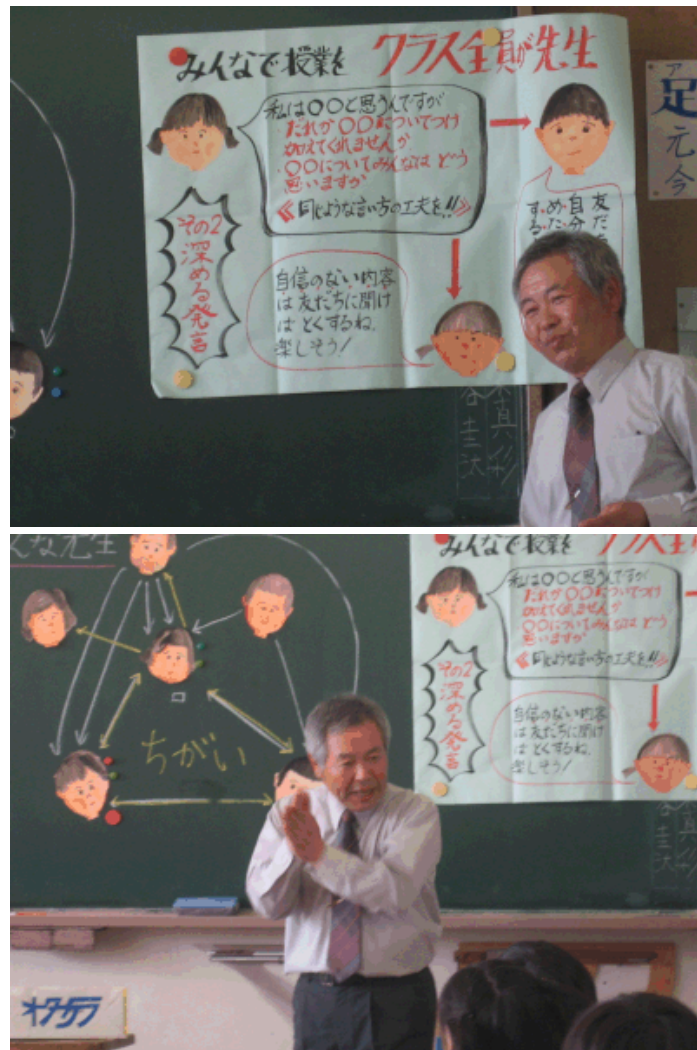 みんなで授業を クラス全員が先生
私は〇〇と思うんですが
だれか〇〇についてつけ
加えてくれませんか
〇〇についてみんなは どう
思いますか
《同じような言い方の工夫を!!》
その2
深める発言
自信のない内容
は友だちに聞け
ば とくするね。
楽しそう!
友だ
自分
めた
する
ア
足
元
今
真彩
谷圭汰
んな先生
ちがい
みんなで授業を クラス全員
私は〇〇と思うんですが
だれか〇〇についてつけ
加えてくれませんか
〇〇についてみんなは どう
思いますか
《同じような言い方の工夫を!!》
その2
深める発言
自信のない内容
は友だちに聞け
ば とくするね。
楽しそう!
谷圭汰